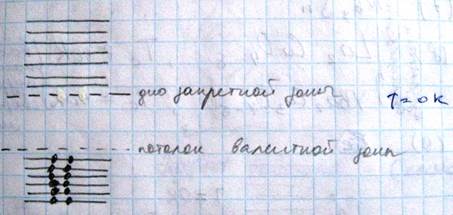 дно запретной зоны
T = 0 K
потолок валентной зоны